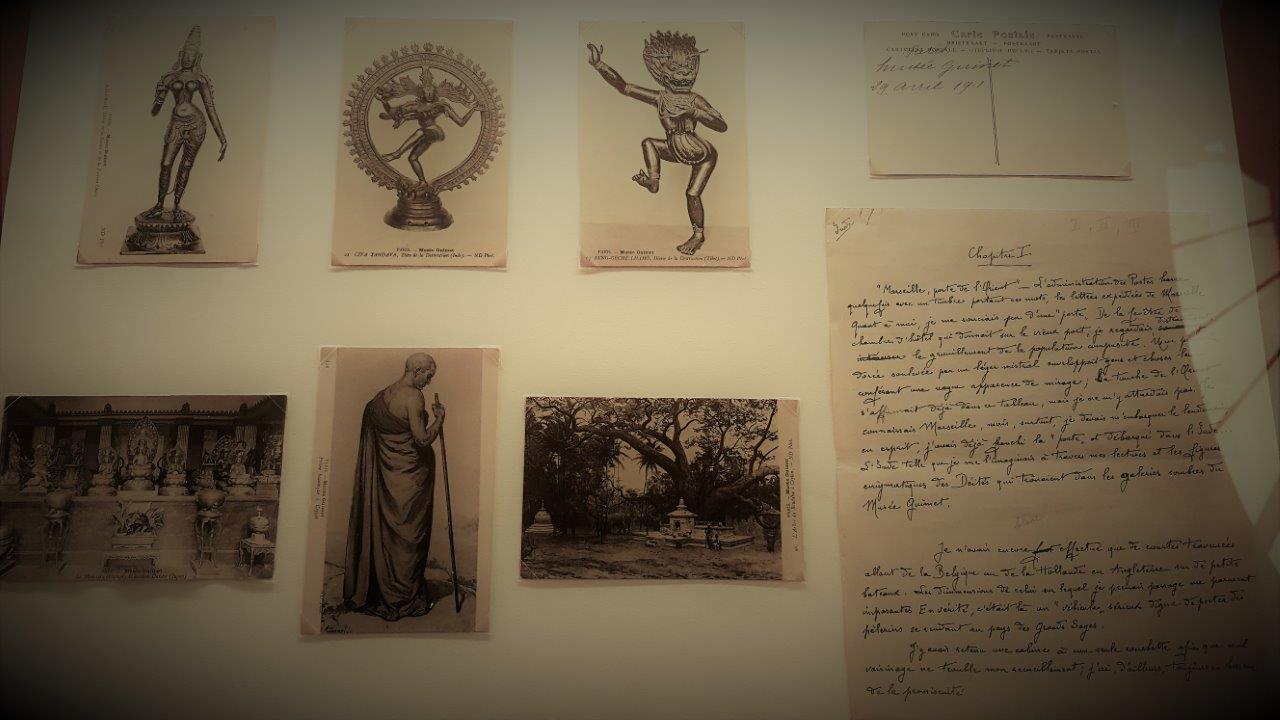 PARIS. — Musée Guimet
21 ÇIVA TANDAVA, Dieu de la Destruction (Inde). — ND Phot.
PARIS. — Musée Guimet
SENG-GECHE LHAMO, Déesse de la Destruction (Tibet). — ND Phot.
POST CARD Carte Postale POSTKARTE
BRIEFKAART — POSTKAART
TARJETA POSTAL
Musée Guimet
29 Avril 191
Musée Guimet
Inde
I, II, III
Chapitre I.
"Marseille, porte de l'Orient" — L'administration des Postes barre
quelquefois avec un timbre portant ces mots, les lettres expédiées de Marseille
Quant à moi, je me souciais peu d'une "porte. De la fenêtre de
chambre d'hôtel qui donnait sur le vieux port, je regardais
le grouillement de la population composite. Une
dorée soulevée par un léger mistral enveloppait gens et choses leur
conférant une vague apparence de mirage; la touche de l'Orient
s'affirmait déjà dans ce tableau, mais je ne m'y attardais pas. Je
connaissais Marseille, mais, surtout, je devais m'embarquer le lendemain
en esprit, j'avais déjà franchi la "porte, et débarqué dans l'Inde
L'Inde telle que je me l'imaginais à travers mes lectures et les figures
énigmatiques des Déités qui trônaient dans les galeries sombres du
Musée Guimet.
Je n'avais encore effectué que de courtes traversées
allant de la Belgique ou de la Hollande en Angleterre sur de petits
bateaux. Les dimensions de celui sur lequel je prenais passage me parurent
imposantes. En vérité, c'était là un "véhicule, sérieux digne de porter des
pèlerins se rendant au pays des Grands Sages.
J'y avais retenu une cabine à une seule couchette afin que nul
voisinage ne trouble mon recueillement; j'ai, d'ailleurs, toujours eu horreur
de la promiscuité